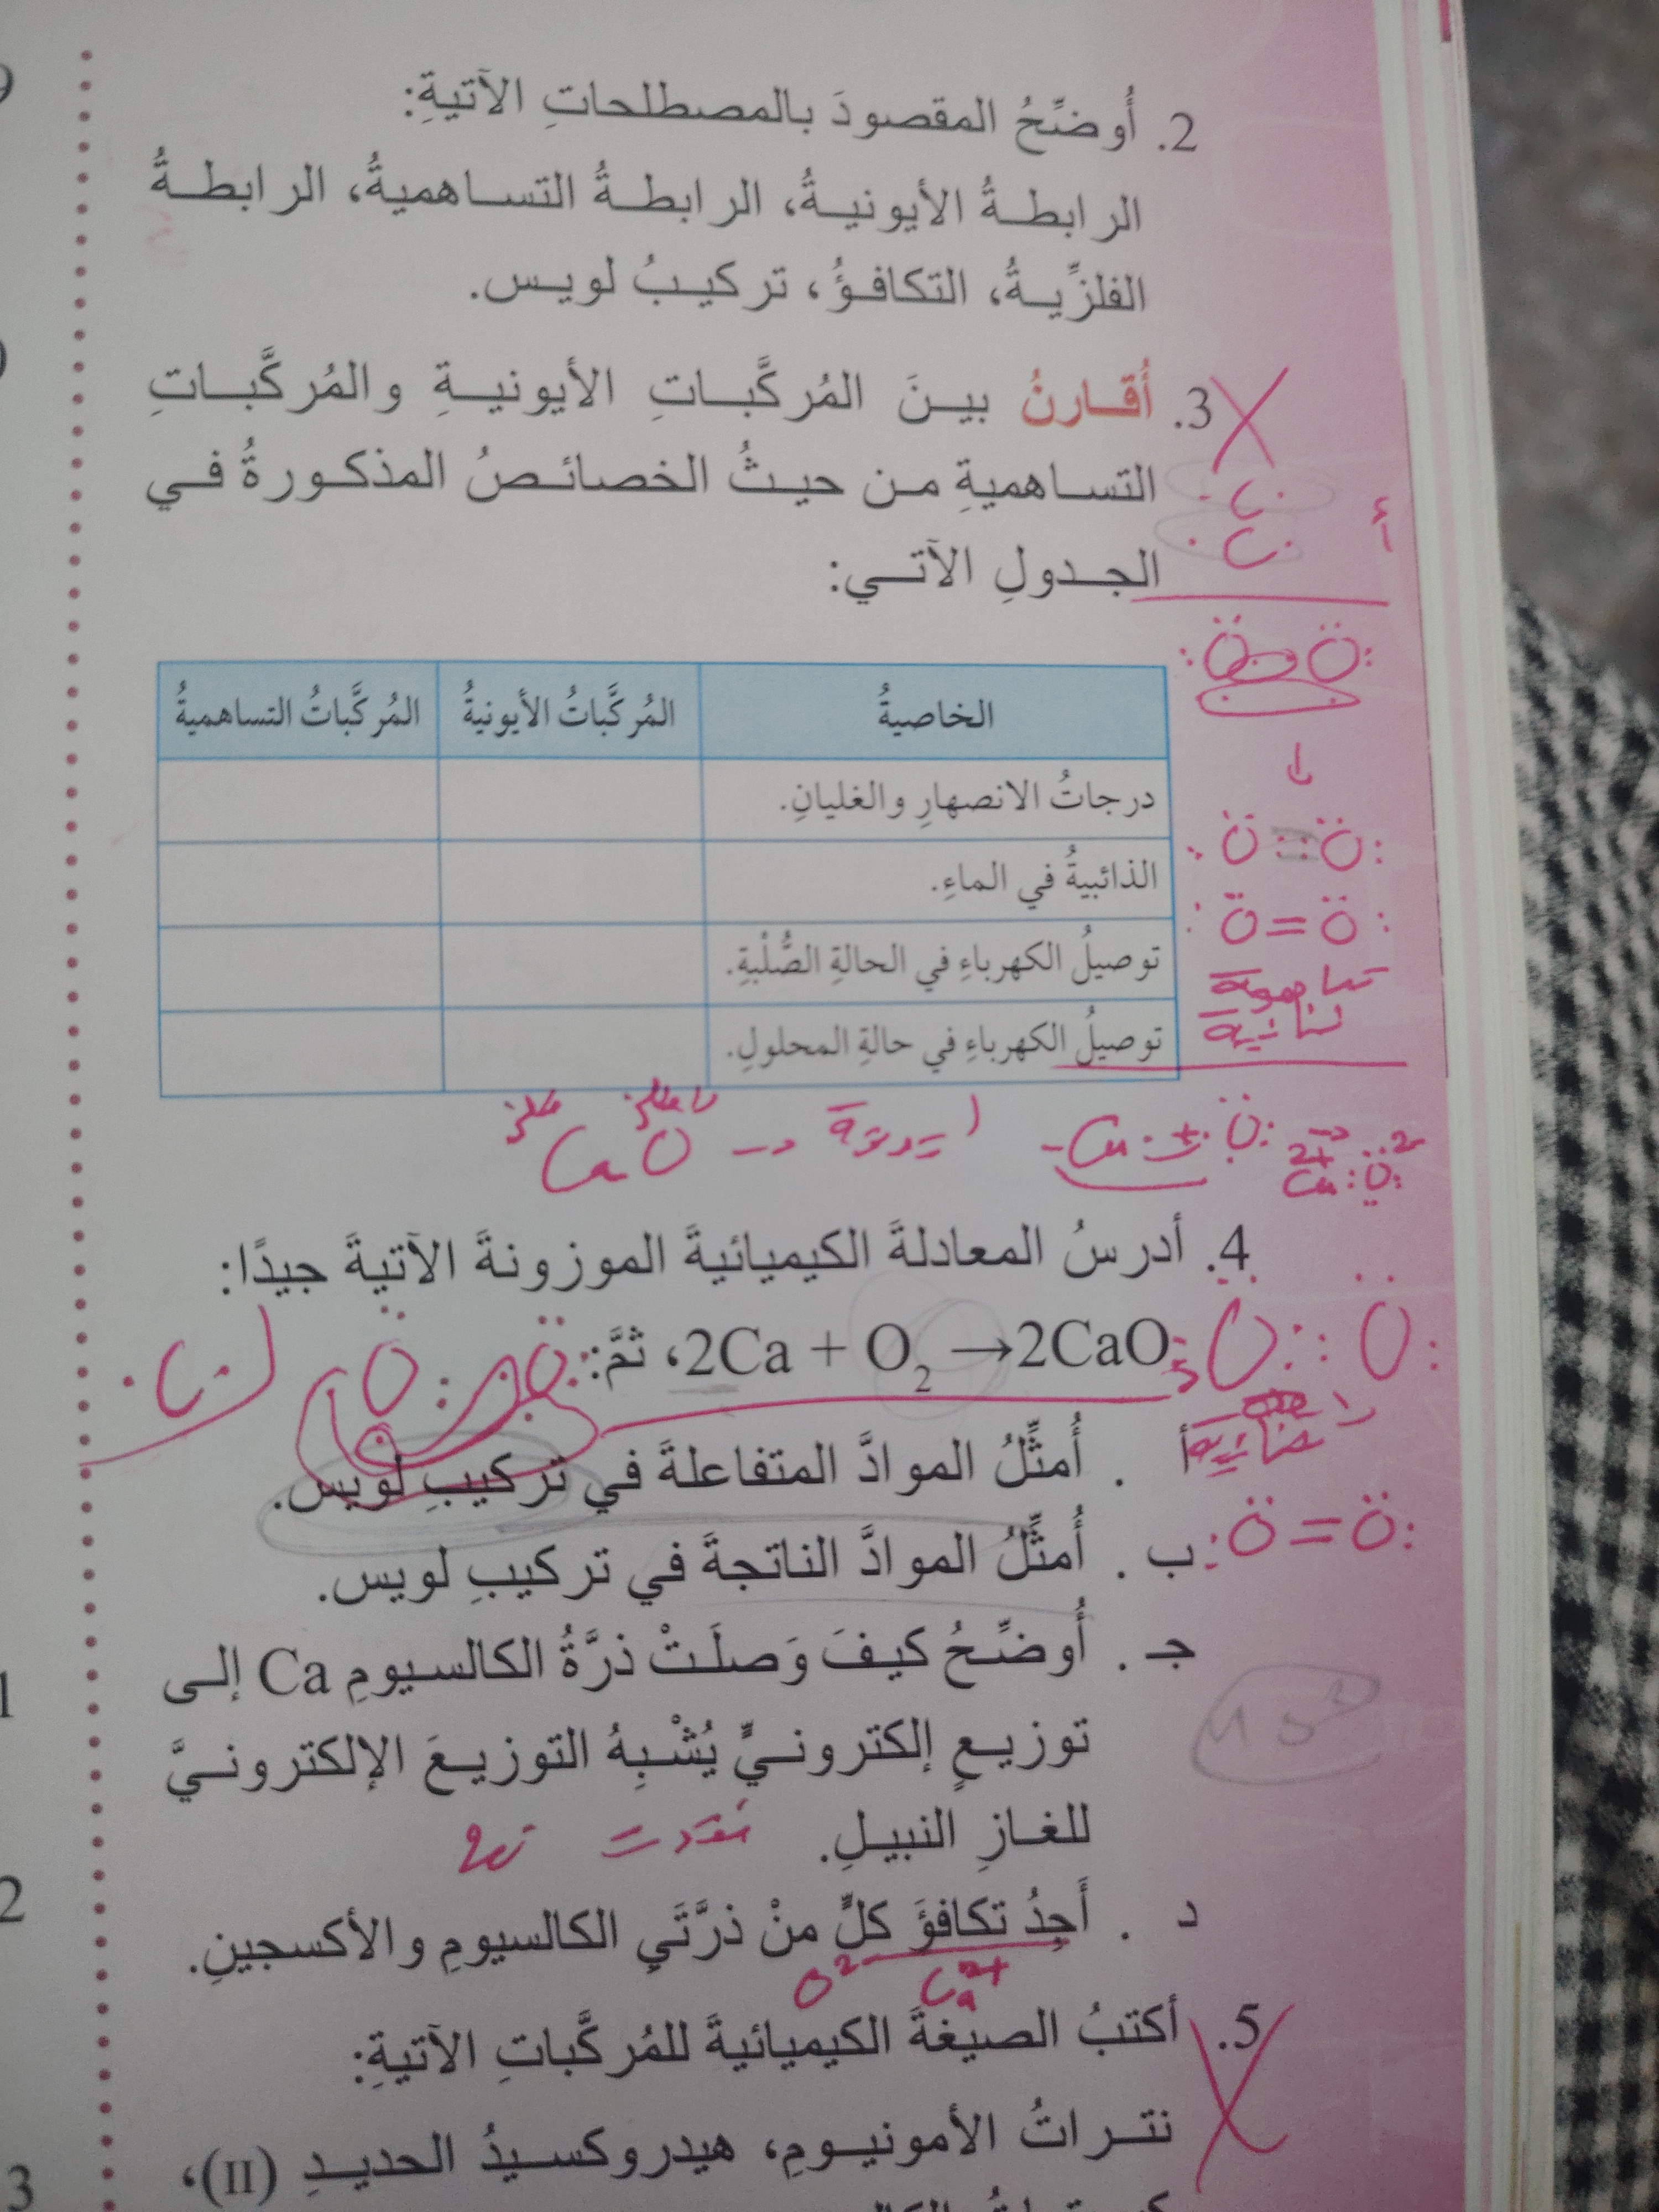 2. أُوضِّحُ المقصودَ بالمصطلحاتِ الآتيةِ:
الرابطةُ الأيونيةُ، الرابطةُ التساهميةُ، الرابطةُ
الفلزِّيةُ، التكافؤُ، تركيبُ لويس.
3. أُقارنُ بينَ المُركَّباتِ الأيونيةِ والمُركَّباتِ
التساهميةِ من حيثُ الخصائصُ المذكورةُ في
الجدولِ الآتي:
الخاصيةُ المُركَّباتُ الأيونيةُ المُركَّباتُ التساهميةُ
درجاتُ الانصهارِ والغليانِ.
الذائبيةُ في الماءِ.
توصيلُ الكهرباءِ في الحالةِ الصُّلْبةِ.
توصيلُ الكهرباءِ في حالةِ المحلولِ.
أ
:Ö=Ö:
تساهمية
ثنائية
فلز لافلز
CaO → أيونية
4. أدرسُ المعادلةَ الكيميائيةَ الموزونةَ الآتيةَ جيدًا:
2Ca + O₂ →2CaO، ثمَّ:
أ . أُمثِّلُ الموادَّ المتفاعلةَ في تركيبِ لويس.
ب . أُمثِّلُ الموادَّ الناتجةَ في تركيبِ لويس.
:Ö=Ö:
جـ . أُوضِّحُ كيفَ وَصلَتْ ذرَّةُ الكالسيومِ Ca إلى
توزيعٍ إلكترونيٍّ يُشْبِهُ التوزيعَ الإلكترونيَّ
للغازِ النبيلِ.
د . أَجِدُ تكافؤَ كلٍّ منْ ذرَّتَيِ الكالسيومِ والأكسجينِ.
Ca²⁺ O²⁻
5. أكتبُ الصيغةَ الكيميائيةَ للمُركَّباتِ الآتيةِ:
نتراتُ الأمونيومِ، هيدروكسيدُ الحديدِ (II)،